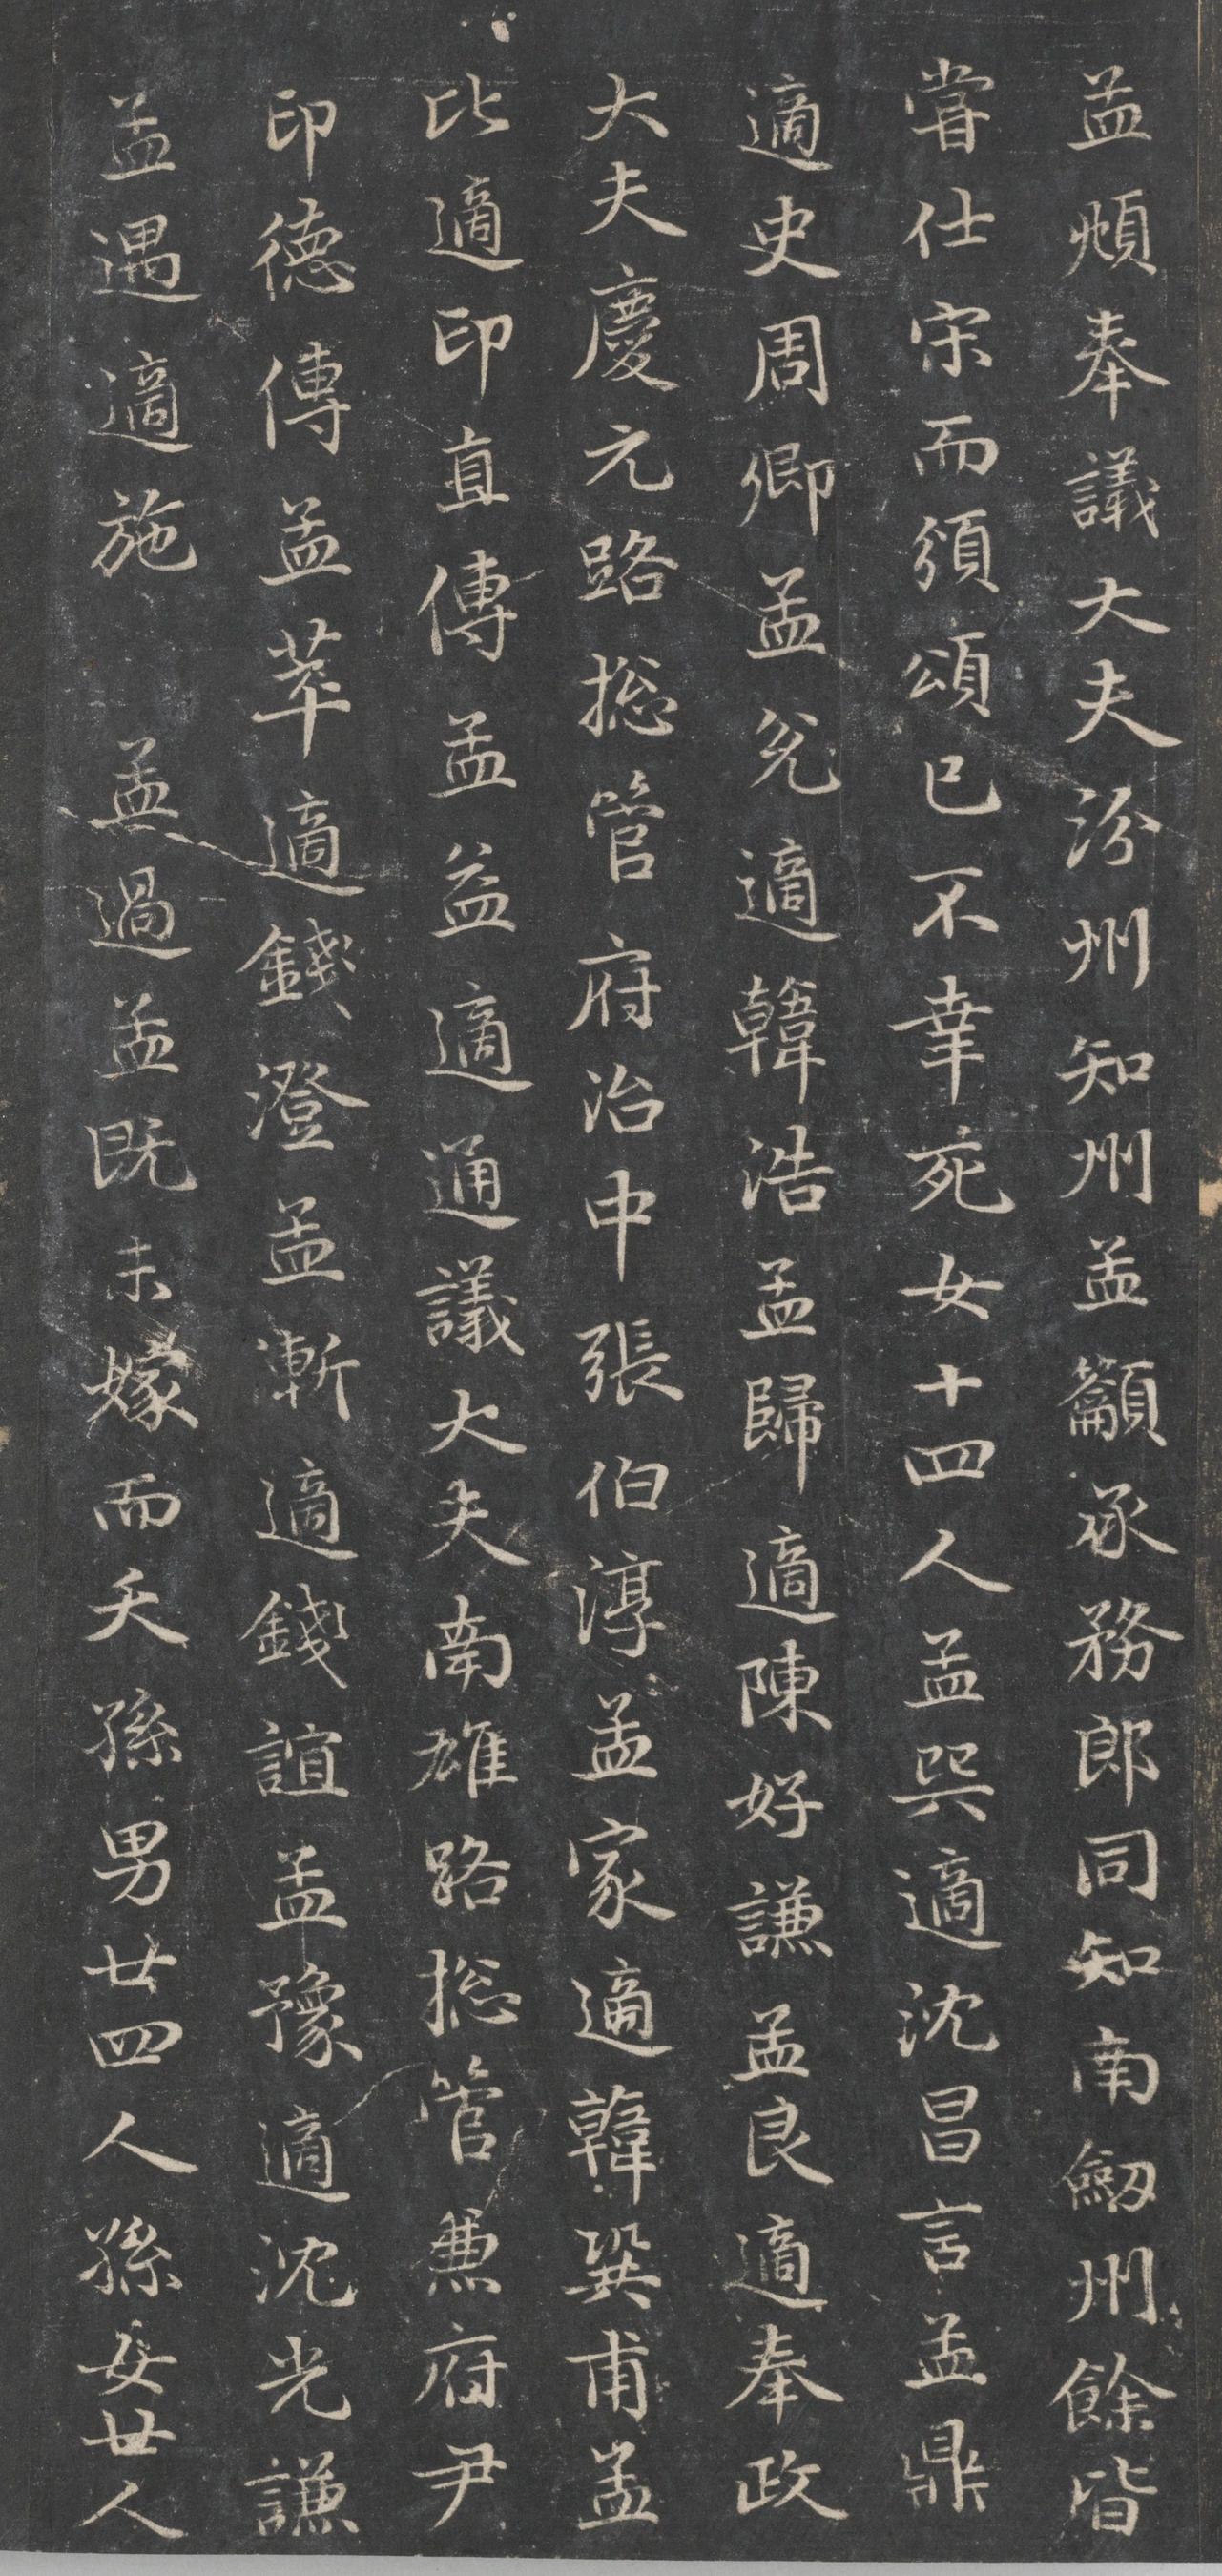 孟頫奉議大夫汾州知州孟籲承務郎同知南劒州餘皆
嘗仕宋而須頌已不幸死女十四人孟巽適沈昌言孟鼎
適史周卿孟兊適韓浩孟歸適陳好謙孟良適奉政
大夫慶元路揔管府治中張伯淳孟家適韓巽甫孟
比適印直傳孟益適通議大夫南雄路揔管兼府尹
印德傳孟萃適錢澄孟漸適錢誼孟豫適沈光謙
孟遇適施 孟過孟既未嫁而夭孫男廿四人孫女廿人